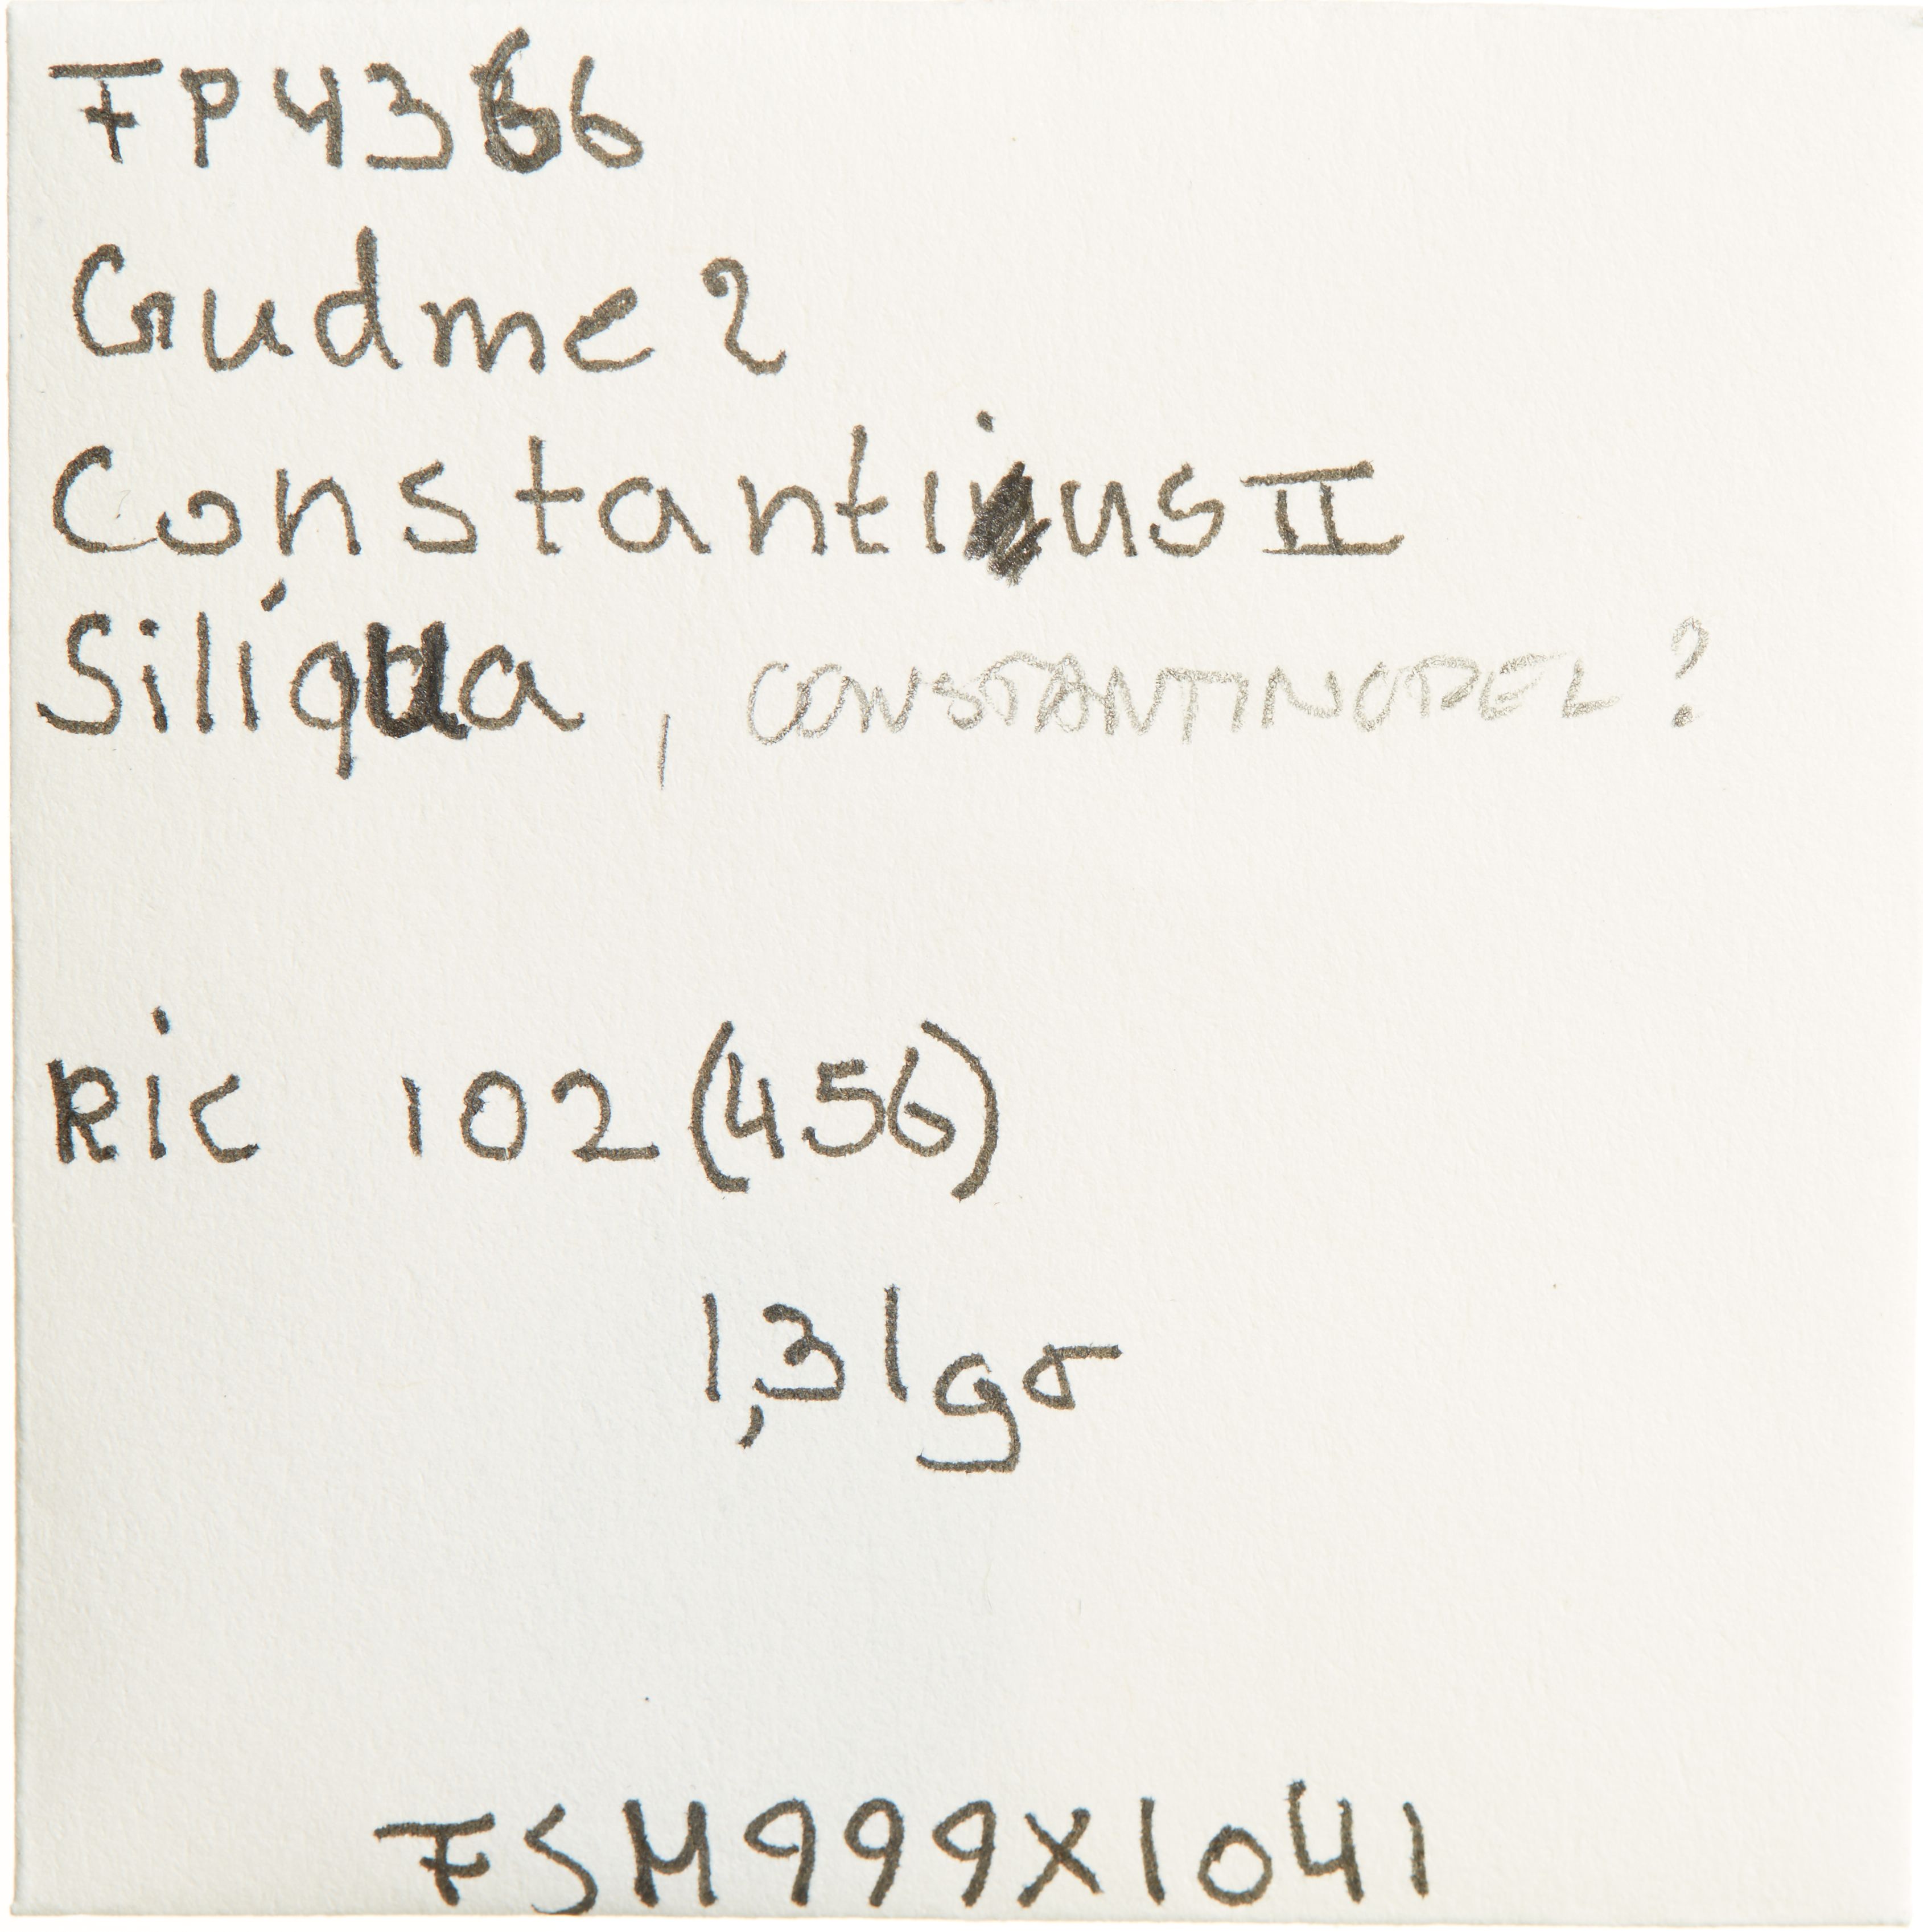 FP4366
Gudme 2
Constantius II
Siliqua, CONSTANTINOPEL?
Ric 102 (456)
1,31gr
FSM999X1041